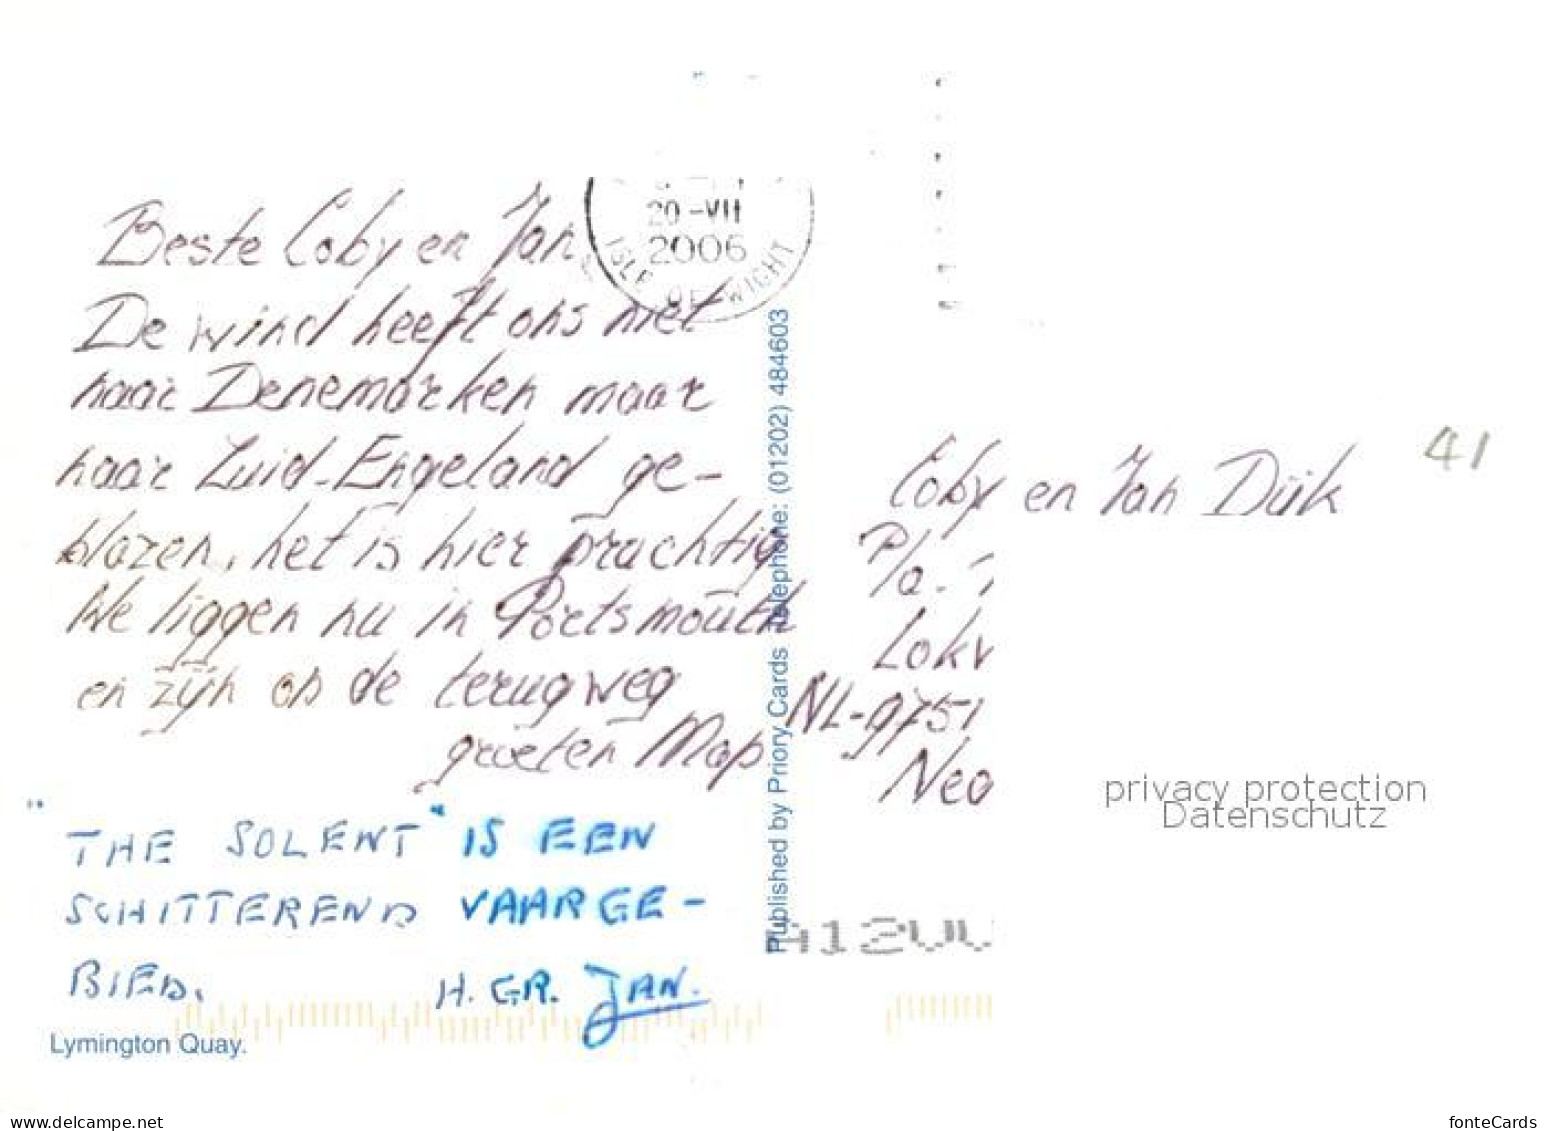 20-VII
2006
ISLE OF WIGHT
Beste Coby en Jan
De wind heeft ons niet
naar Denemarken maar
naar Zuid-Engeland ge-
blazen, het is hier prachtig
We liggen nu in Portsmouth
en zijn op de terugweg
groeten Map
"THE SOLENT" IS EEN
SCHITTEREND VAARGE-
BIED.
H. GR. JAN.
Lymington Quay.
Published by Priory Cards Telephone: (01202) 484603
41
Coby en Jan Duk
P/a.
Lokv
NL-9751
Neo
privacy protection
Datenschutz
www.delcampe.net
fonteCards